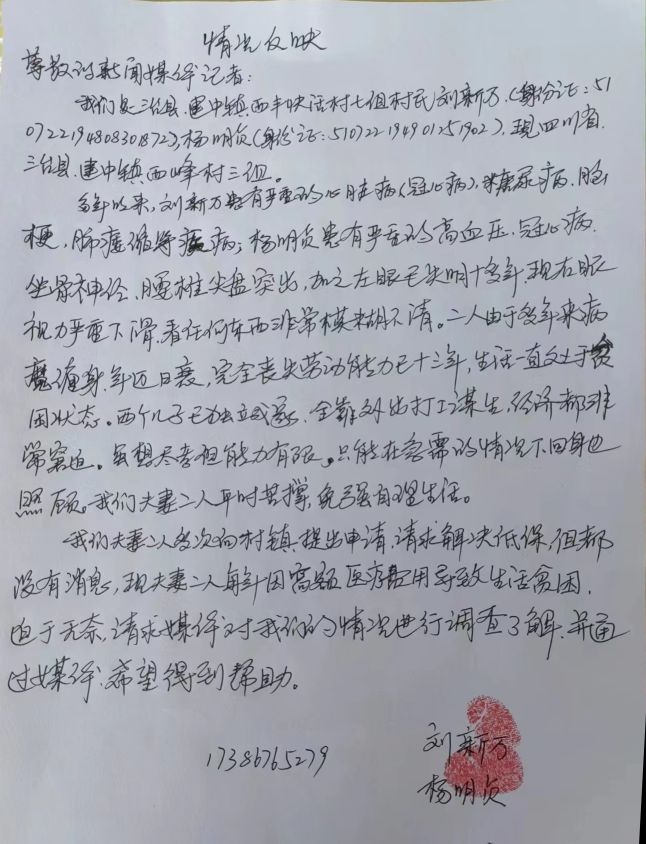 情况反映
尊敬的新闻媒体记者：
我们是三台县.建中镇.西丰快活村七组村民刘新万.(身份证：510
722194808301872),杨明贞(身份证：510722194901251902),现四川省.
三台县.建中镇.西峰村三组。
多年以来,刘新万患有严重的心脏病(冠心病),糖尿病.脑
梗,肺萎缩等疾病；杨明贞患有严重的高血压.冠心病.
坐骨神经、腰椎尖盘突出,加之左眼已失明十多年.现右眼
视力严重下滑,看任何东西非常模糊不清。二人由于多年来病
魔缠身.年迈日衰,完全丧失劳动能力已十三年,生活一直处于贫
困状态。西个儿子已独立成家,全靠外出打工谋生,经济都非
常窘迫。虽想尽孝但能力有限。只能在急需的情况下回身也
照顾.我们夫妻二人平时苦撑,勉强自理生活。
我们夫妻二人多次向村镇.提出申请,请求解决低保,但都
没有消息,现夫妻二人每年因高额医疗费用导致生活贫困.
迫于无奈,请求媒体对我们的情况进行调查了解.并通
过媒体.希望得到帮助。
17386765279
刘新万
杨明贞